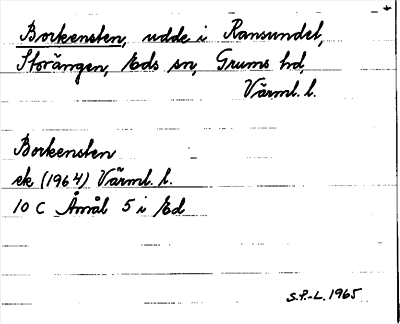 Borkensten, udde i Ransundet,
Storängen, Eds sn, Grums hd,
Värml. l.
Borkensten
ek (1964) Värml. l.
10 C Åmål 5 i Ed
S.P.-L. 1965